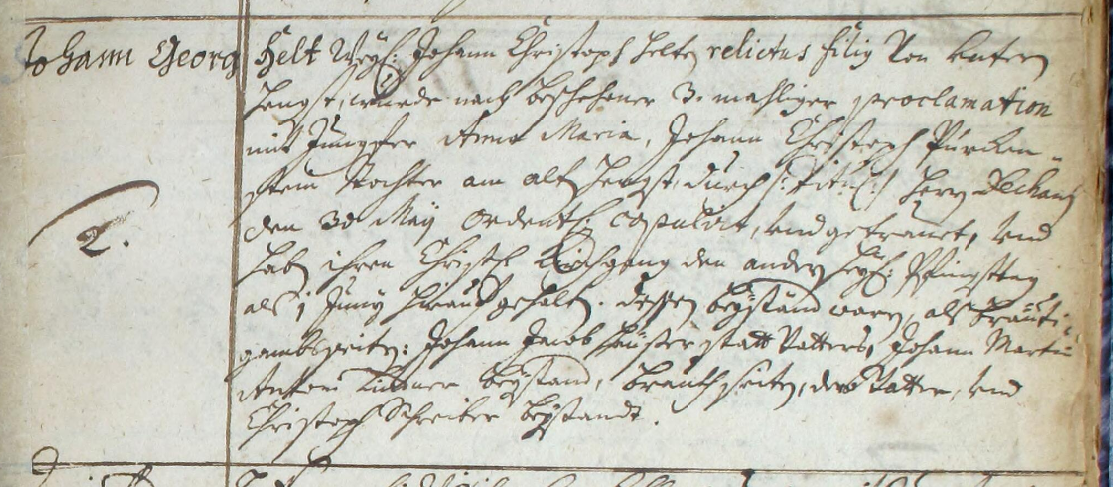 Johann Georg Helt Weyl: Johann Christoph Helten relictus filiq von Untern
Hengst, wurde nach beschehener 3. mahliger proclamation
mit Jungfer Anna Maria, Johann Christoph
Tochter am alt Hengst, durch (: Titul :) Herrn Dechant
den 30 Maÿ ordentl: copulirt, und getrauet, und
habn ihren Christl: Kirchgang den andern heÿl: Pfingsttag
als 1 Junÿ hierauf gehalten. dessen beÿständ waren, als bräuti-
gambseiten: Johann Jacob Häußer statt Vatters, Johann Martin
Anton beÿstand, brauth seiten, der Vatter, und
Christoph Schreiber beÿstandt.
2.